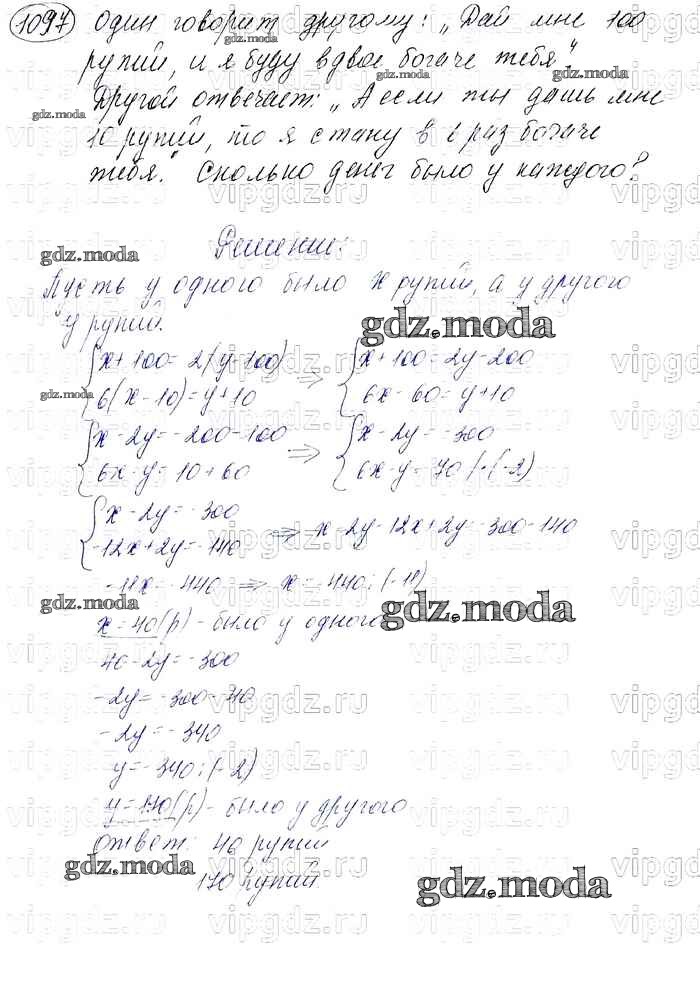 1097 Один говорит другому: „Дай мне 100
рупий, и я буду вдвое богаче тебя“.
Другой отвечает: „А если ты дашь мне
10 рупий, то я стану в 6 раз богаче
тебя.“ Сколько денег было у каждого?
Решение:
Пусть у одного было x рупий, а у другого
y рупий.
{x+100=2(y-100) => {x+100=2y-200
6(x-10)=y+10 6x-60=y+10
{x-2y=-200-100 => {x-2y=-300
6x-y=10+60 6x-y=70 |·(-2)
{x-2y=-300
-12x+2y=-140 => x-2y-12x+2y=-300-140
-11x=-440 => x=-440:(-11)
x=40(р) - было у одного
40-2y=-300
-2y=-300-40
-2y=-340
y=-340:(-2)
y=170(р) - было у другого
ответ: 40 рупий
170 рупий.
gdz.moda
vipgdz.ru